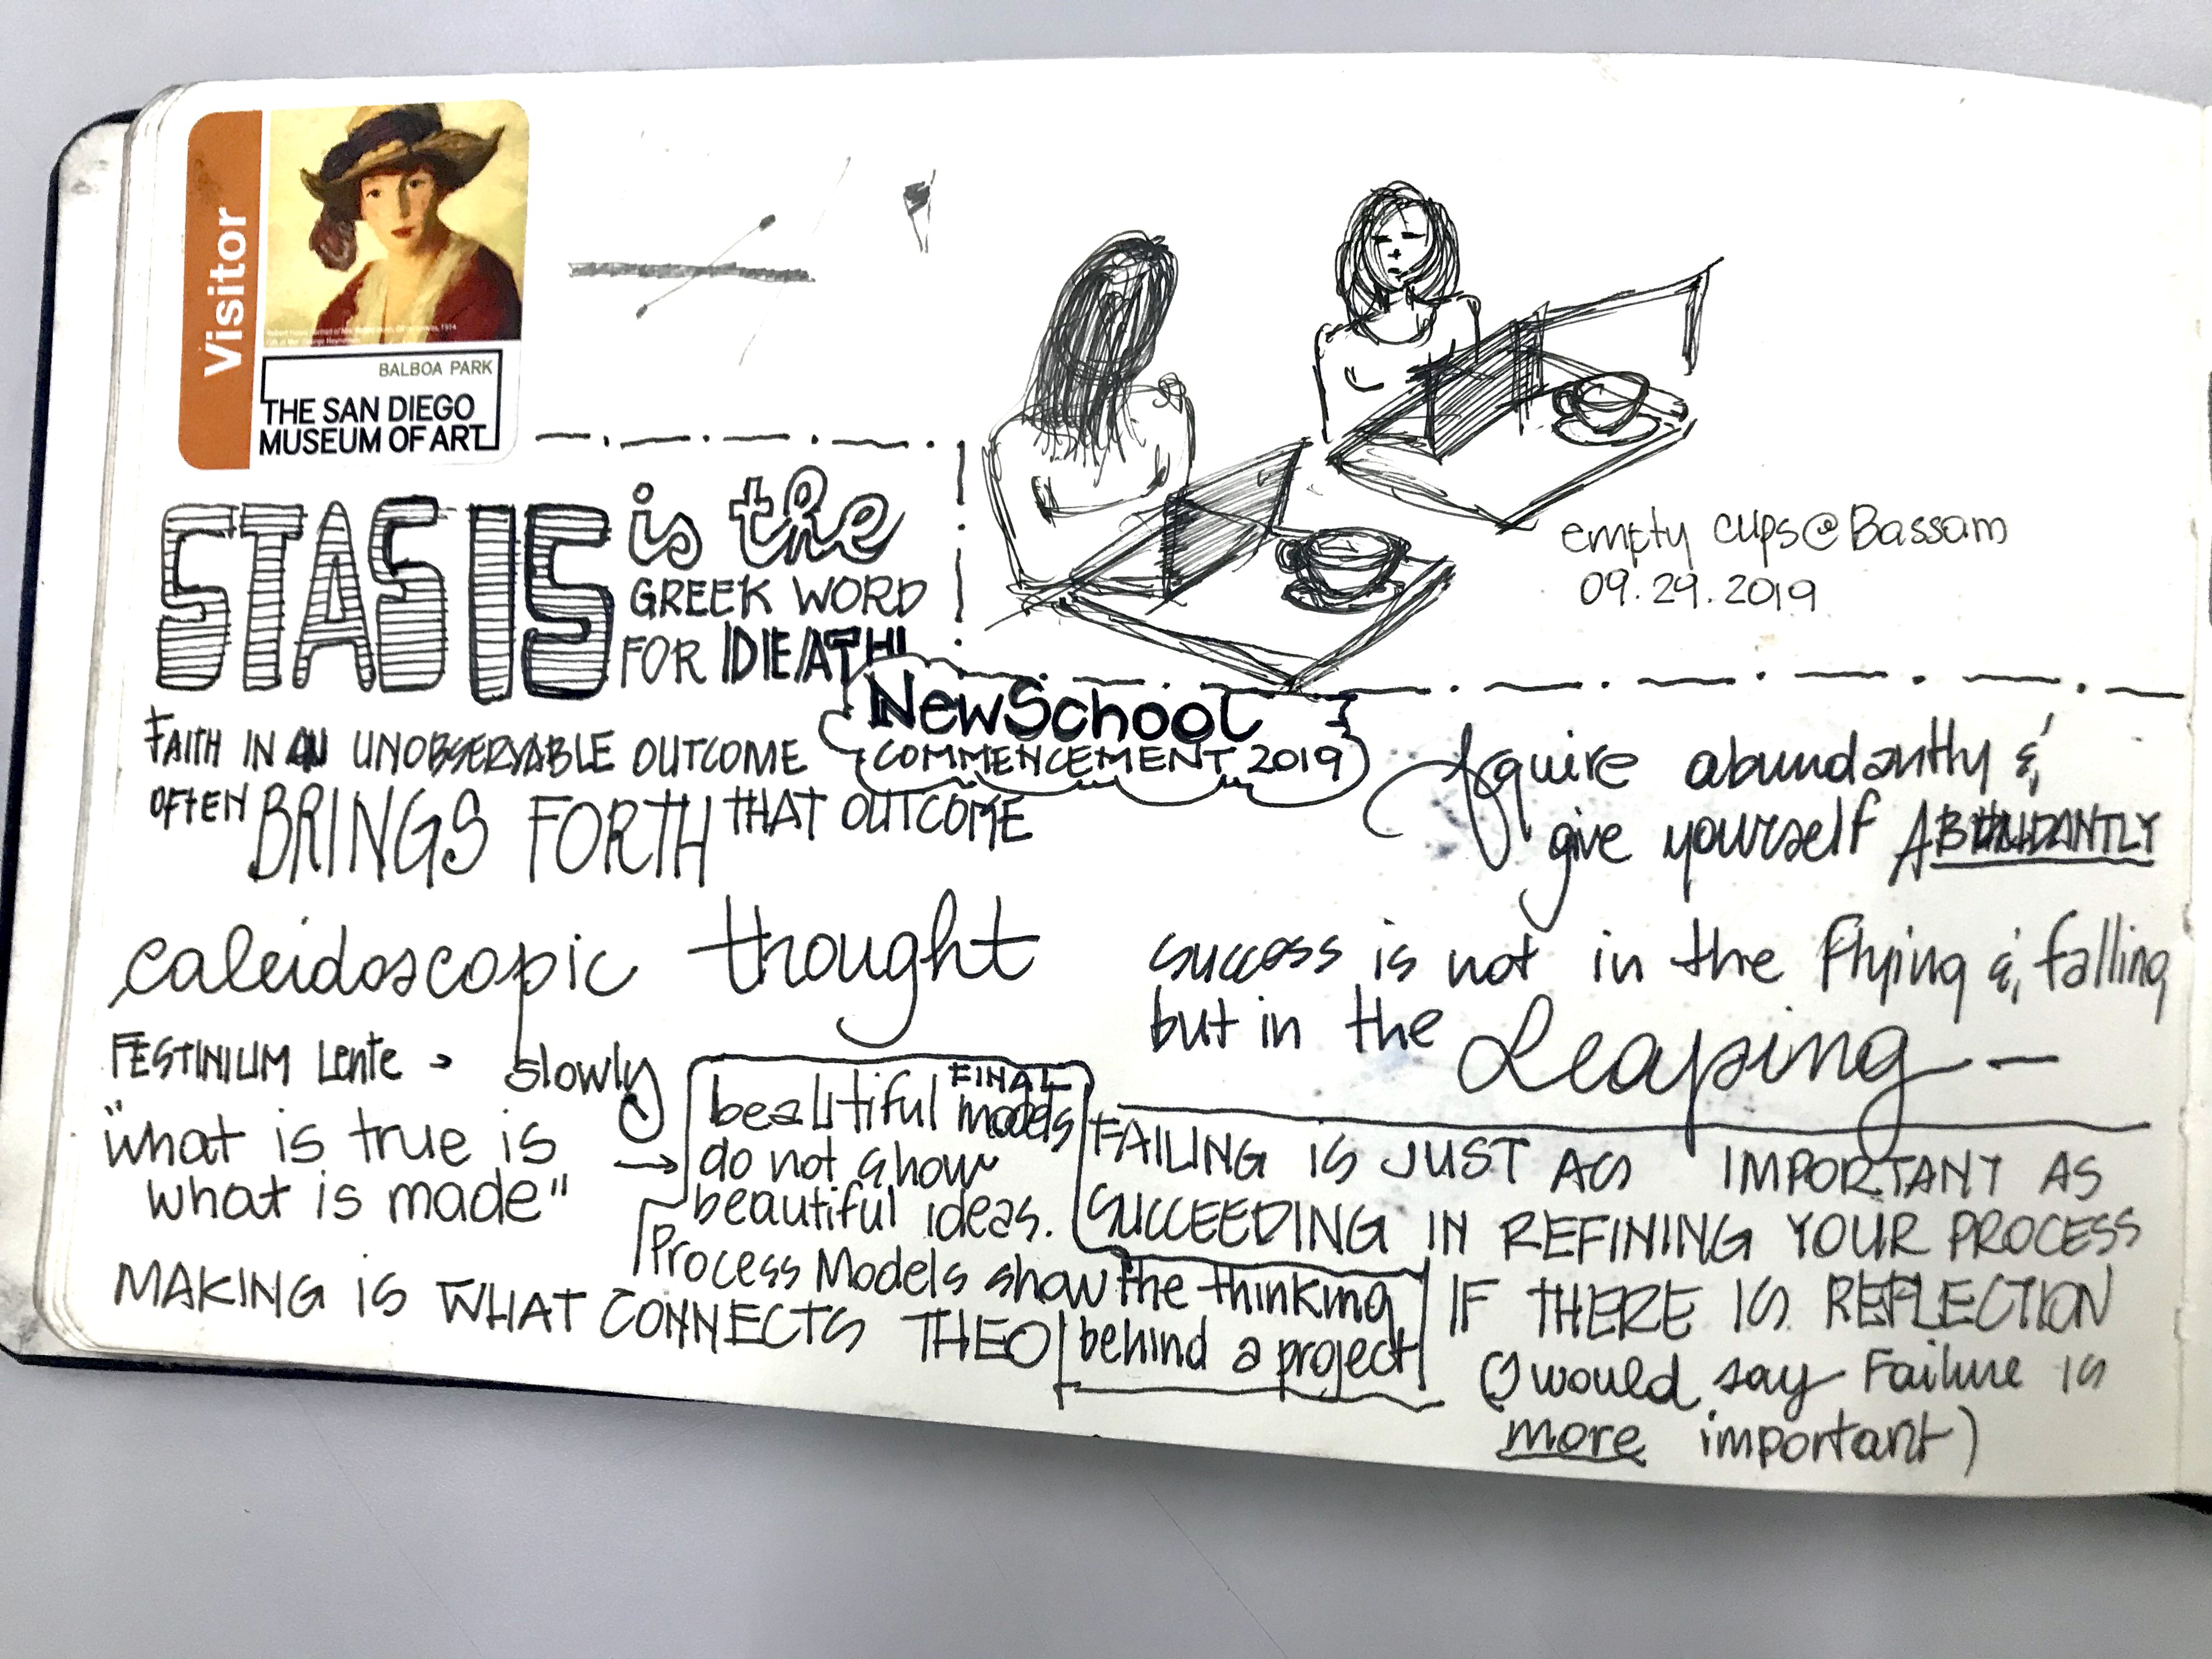 Visitor
BALBOA PARK
THE SAN DIEGO
MUSEUM OF ART
empty cups@Bassam
09.29.2019
STASIS is the
GREEK WORD
FOR DEATH!
NewSchool
COMMENCEMENT 2019
FAITH IN AN UNOBSERVABLE OUTCOME
OFTEN BRINGS FORTH THAT OUTCOME
Aquire abundantly &
give yourself ABUNDANTLY
caleidoscopic thought
success is not in the flying & falling
but in the Leaping—
FESTINIUM Lente → slowly
"what is true is
what is made"
beautiful FINAL models
do not show
beautiful ideas.
Process Models show the thinking
behind a project
MAKING IS WHAT CONNECTS THEO
FAILING IS JUST AS IMPORTANT AS
SUCCEEDING IN REFINING YOUR PROCESS
IF THERE IS REFLECTION
(I would say Failure is
more important)